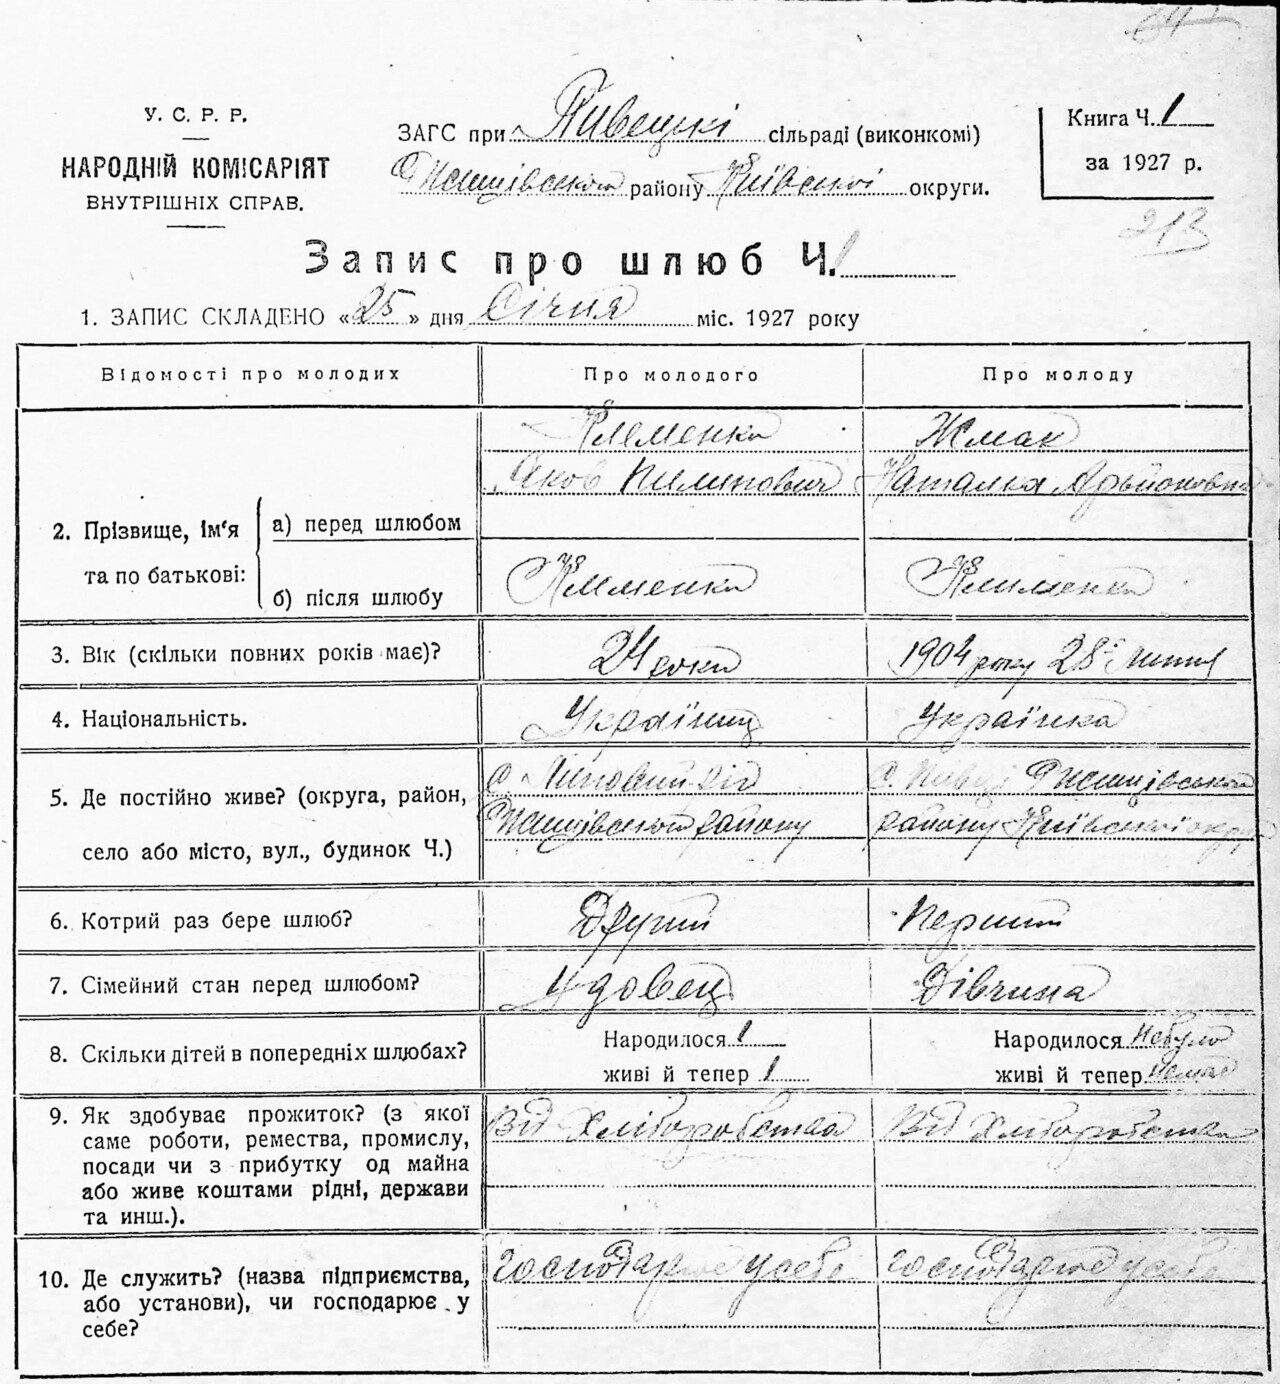 У. С. Р. Р.
НАРОДНІЙ КОМІСАРІЯТ
ВНУТРІШНІХ СПРАВ.
ЗАГС при Пивецькі сільраді (виконкомі)
Ржищівського району Київської округи.
Книга Ч. 1
за 1927 р.
213
Запис про шлюб Ч. 1
1. ЗАПИС СКЛАДЕНО «25» дня Січня міс. 1927 року
Відомості про молодих
Про молодого
Про молоду
2. Прізвище, ім'я та по батькові:
а) перед шлюбом
Клеменко
Яков Пилипович
Жмак
Наталка
б) після шлюбу
Клименко
Клименко
3. Вік (скільки повних років має)?
24 роки
1904 року 28
4. Національність.
Українец
Українка
5. Де постійно живе? (округа, район,
село або місто, вул., будинок Ч.)
с. Липовий ріг
Ржищівського району
с. Півці Ржищівського
району Київської округ
6. Котрий раз бере шлюб?
Другий
Перший
7. Сімейний стан перед шлюбом?
Удовец
Дівчина
8. Скільки дітей в попередніх шлюбах?
Народилося 1
живі й тепер 1
Народилося небуло
живі й тепер немає
9. Як здобуває прожиток? (з якої
саме роботи, ремества, промислу,
посади чи з прибутку од майна
або живе коштами рідні, держави
та инш.).
Від Хліборобства
Від Хліборобства
10. Де служить? (назва підприємства,
або установи), чи господарює у
себе?
господарює у себе
господарює у себе